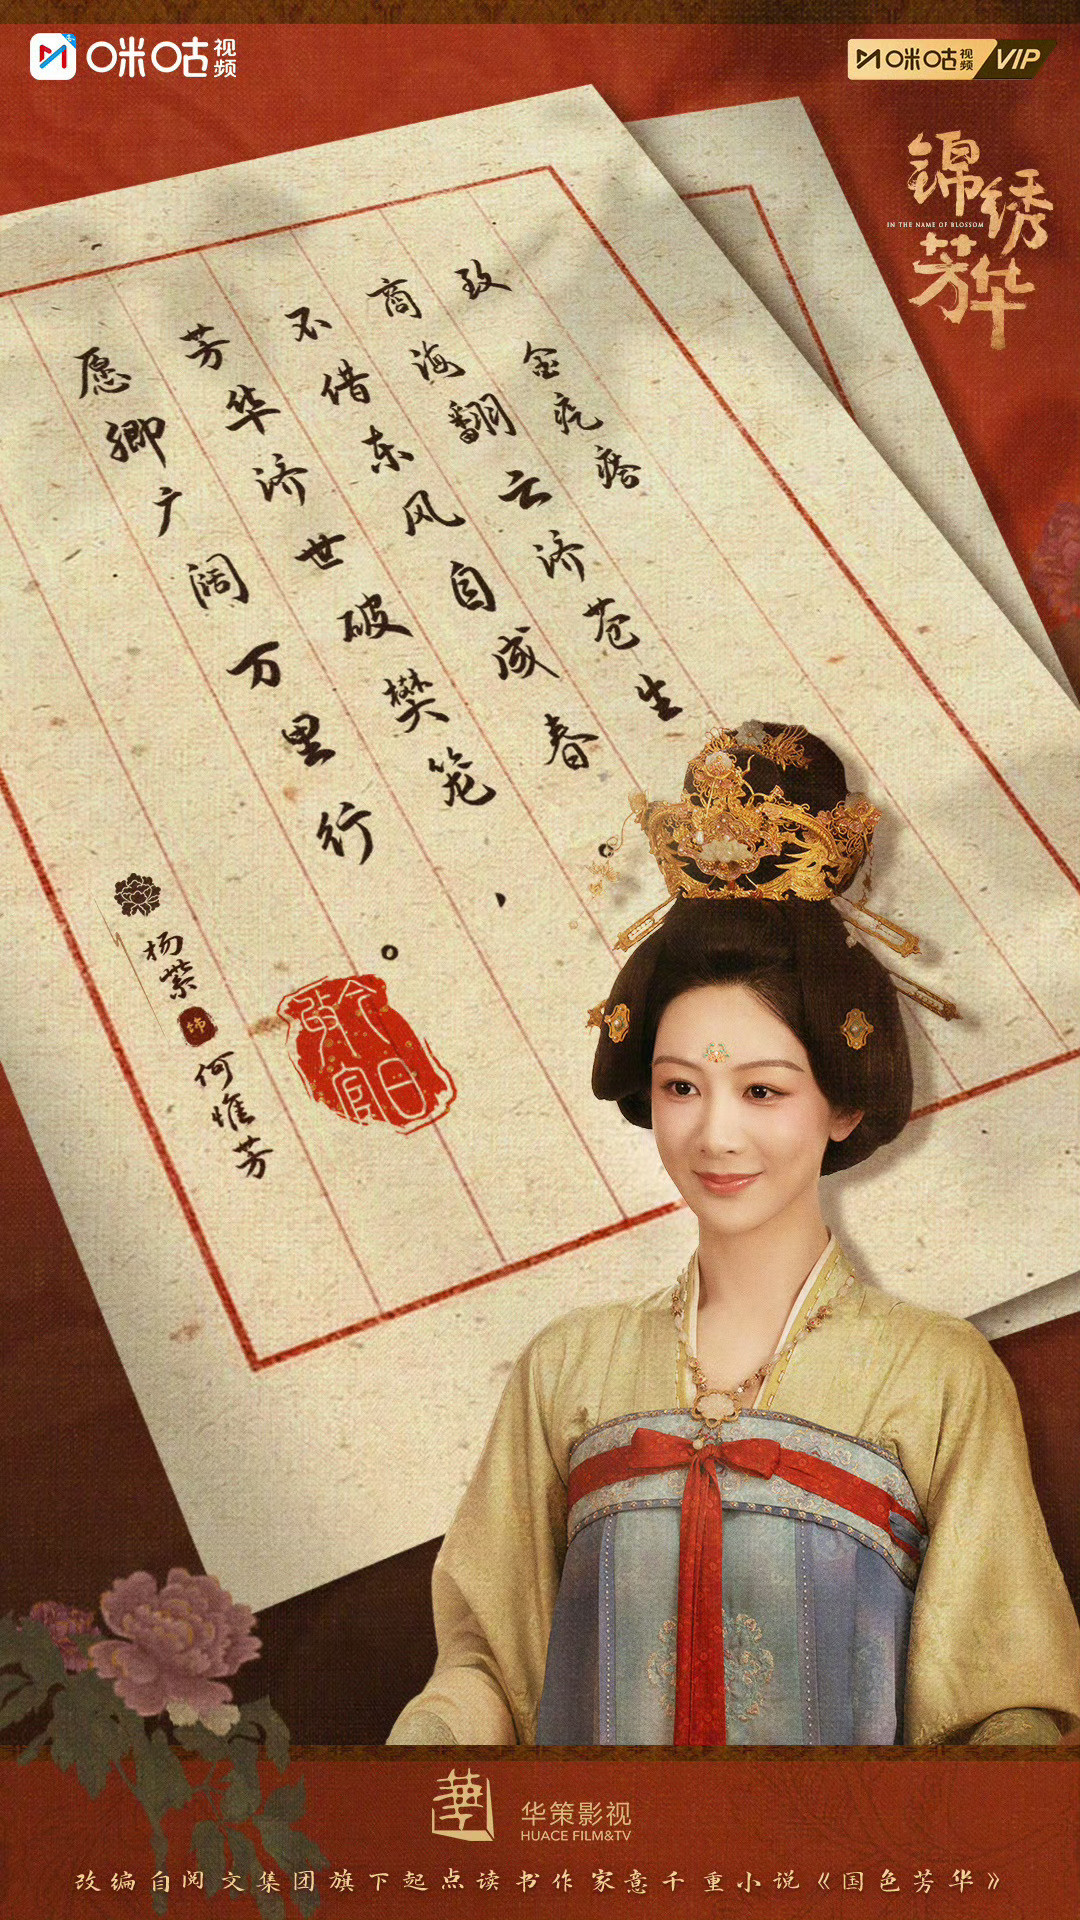 咪咕视频
咪咕视频 VIP
锦绣芳华
IN THE NAME OF BLOSSOM
致
金疙瘩
商海翻云济苍生
不借东风自成春。
芳华济世破樊笼，
愿卿广阔万里行。
今日
杨紫 饰 何惟芳
華
华策影视
HUACE FILM&TV
改编自阅文集团旗下起点读书作家意千重小说《国色芳华》